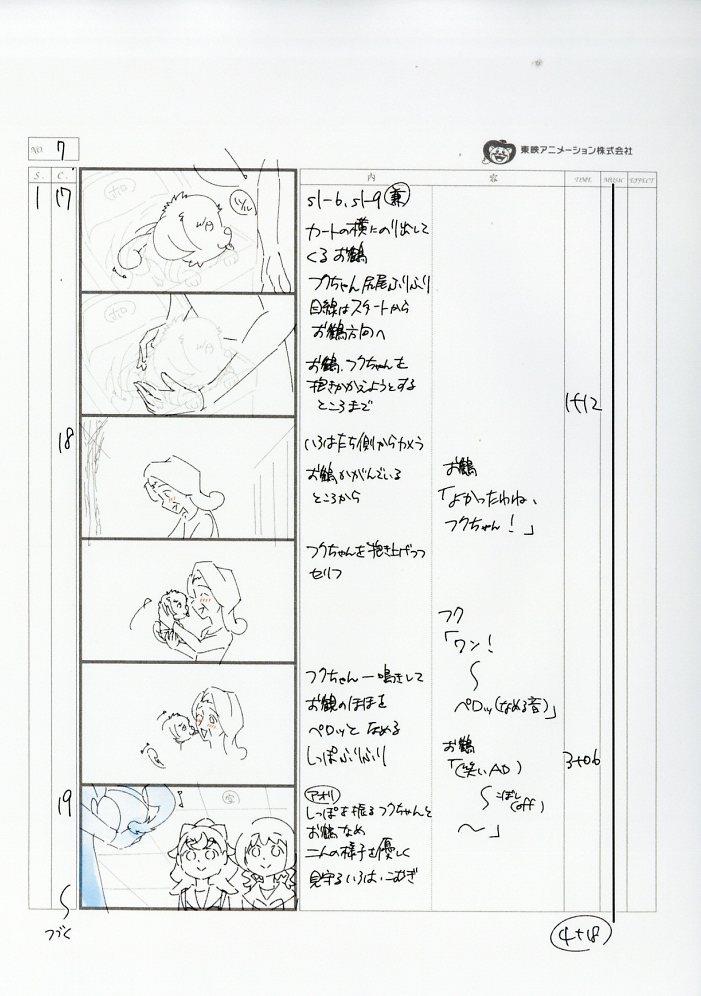 NO. 7
東映アニメーション株式会社
S. C. 内 容 TIME MUSIC EFFECT
1 17
S1-6、S1-9 兼
カートの横にのり出して
くるお鶴
フクちゃん尻尾ふりふり
目線はスタートから
お鶴方向へ
お鶴、フクちゃんを
抱きかかえようとする
ところまで
1+12
18
いろはたち側からカメラ
お鶴かがんでいる
ところから
お鶴
「よかったわね、
フクちゃん!」
フクちゃんを抱き上げつつ
セリフ
フク
「ワン!
〜
ペロッ(なめる音)」
フクちゃん一鳴きして
お鶴のほほを
ペロッと なめる
しっぽふりふり
お鶴
「(笑いAD)
〜こぼし
(off)
〜」
3+06
19
アオリ
しっぽを振るフクちゃんと
お鶴なめ
二人の様子を優しく
見守るいろは、こむぎ
空
つづく
4+18